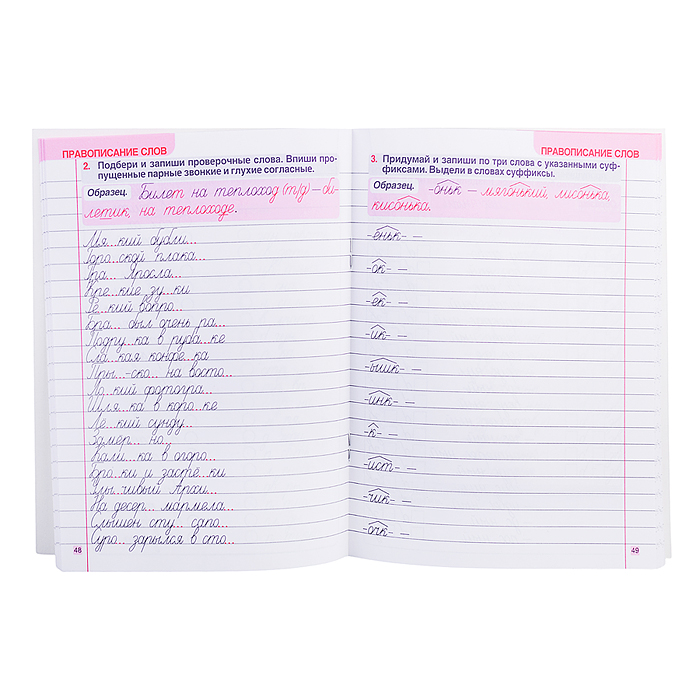 ПРАВОПИСАНИЕ СЛОВ
2. Подбери и запиши проверочные слова. Впиши про-
пущенные парные звонкие и глухие согласные.
Образец. Билет на теплоход (т/д) – би-
летик, на теплоходе.
Мя...кий бубли...
Горо...ской плака...
Бра... Яросла...
Кре...кие зу...ки
Ре...кий вопро...
Бра... был очень ра...
Подру...ка в руба...ке
Сла...кая конфе...ка
Пры...-ско... на восто...
Ло...кий фотогра...
Шля...ка в коро...ке
Ле...кий сунду...
Замер... но...
Кали...ка в огоро...
Боро...ки и застё...ки
Улы...чивый Арси...
На десер... мармела...
Слышен сту... сапо...
Суро... зарылся в сто...
48
ПРАВОПИСАНИЕ СЛОВ
3. Придумай и запиши по три слова с указанными суф-
фиксами. Выдели в словах суффиксы.
Образец. -оньк – мягонький, лисонька,
кисонька.
-еньк- –
-ок- –
-ек- –
-ик- –
-ышк- –
-инк- –
-к- –
-ист- –
-чик- –
-очк- –
49